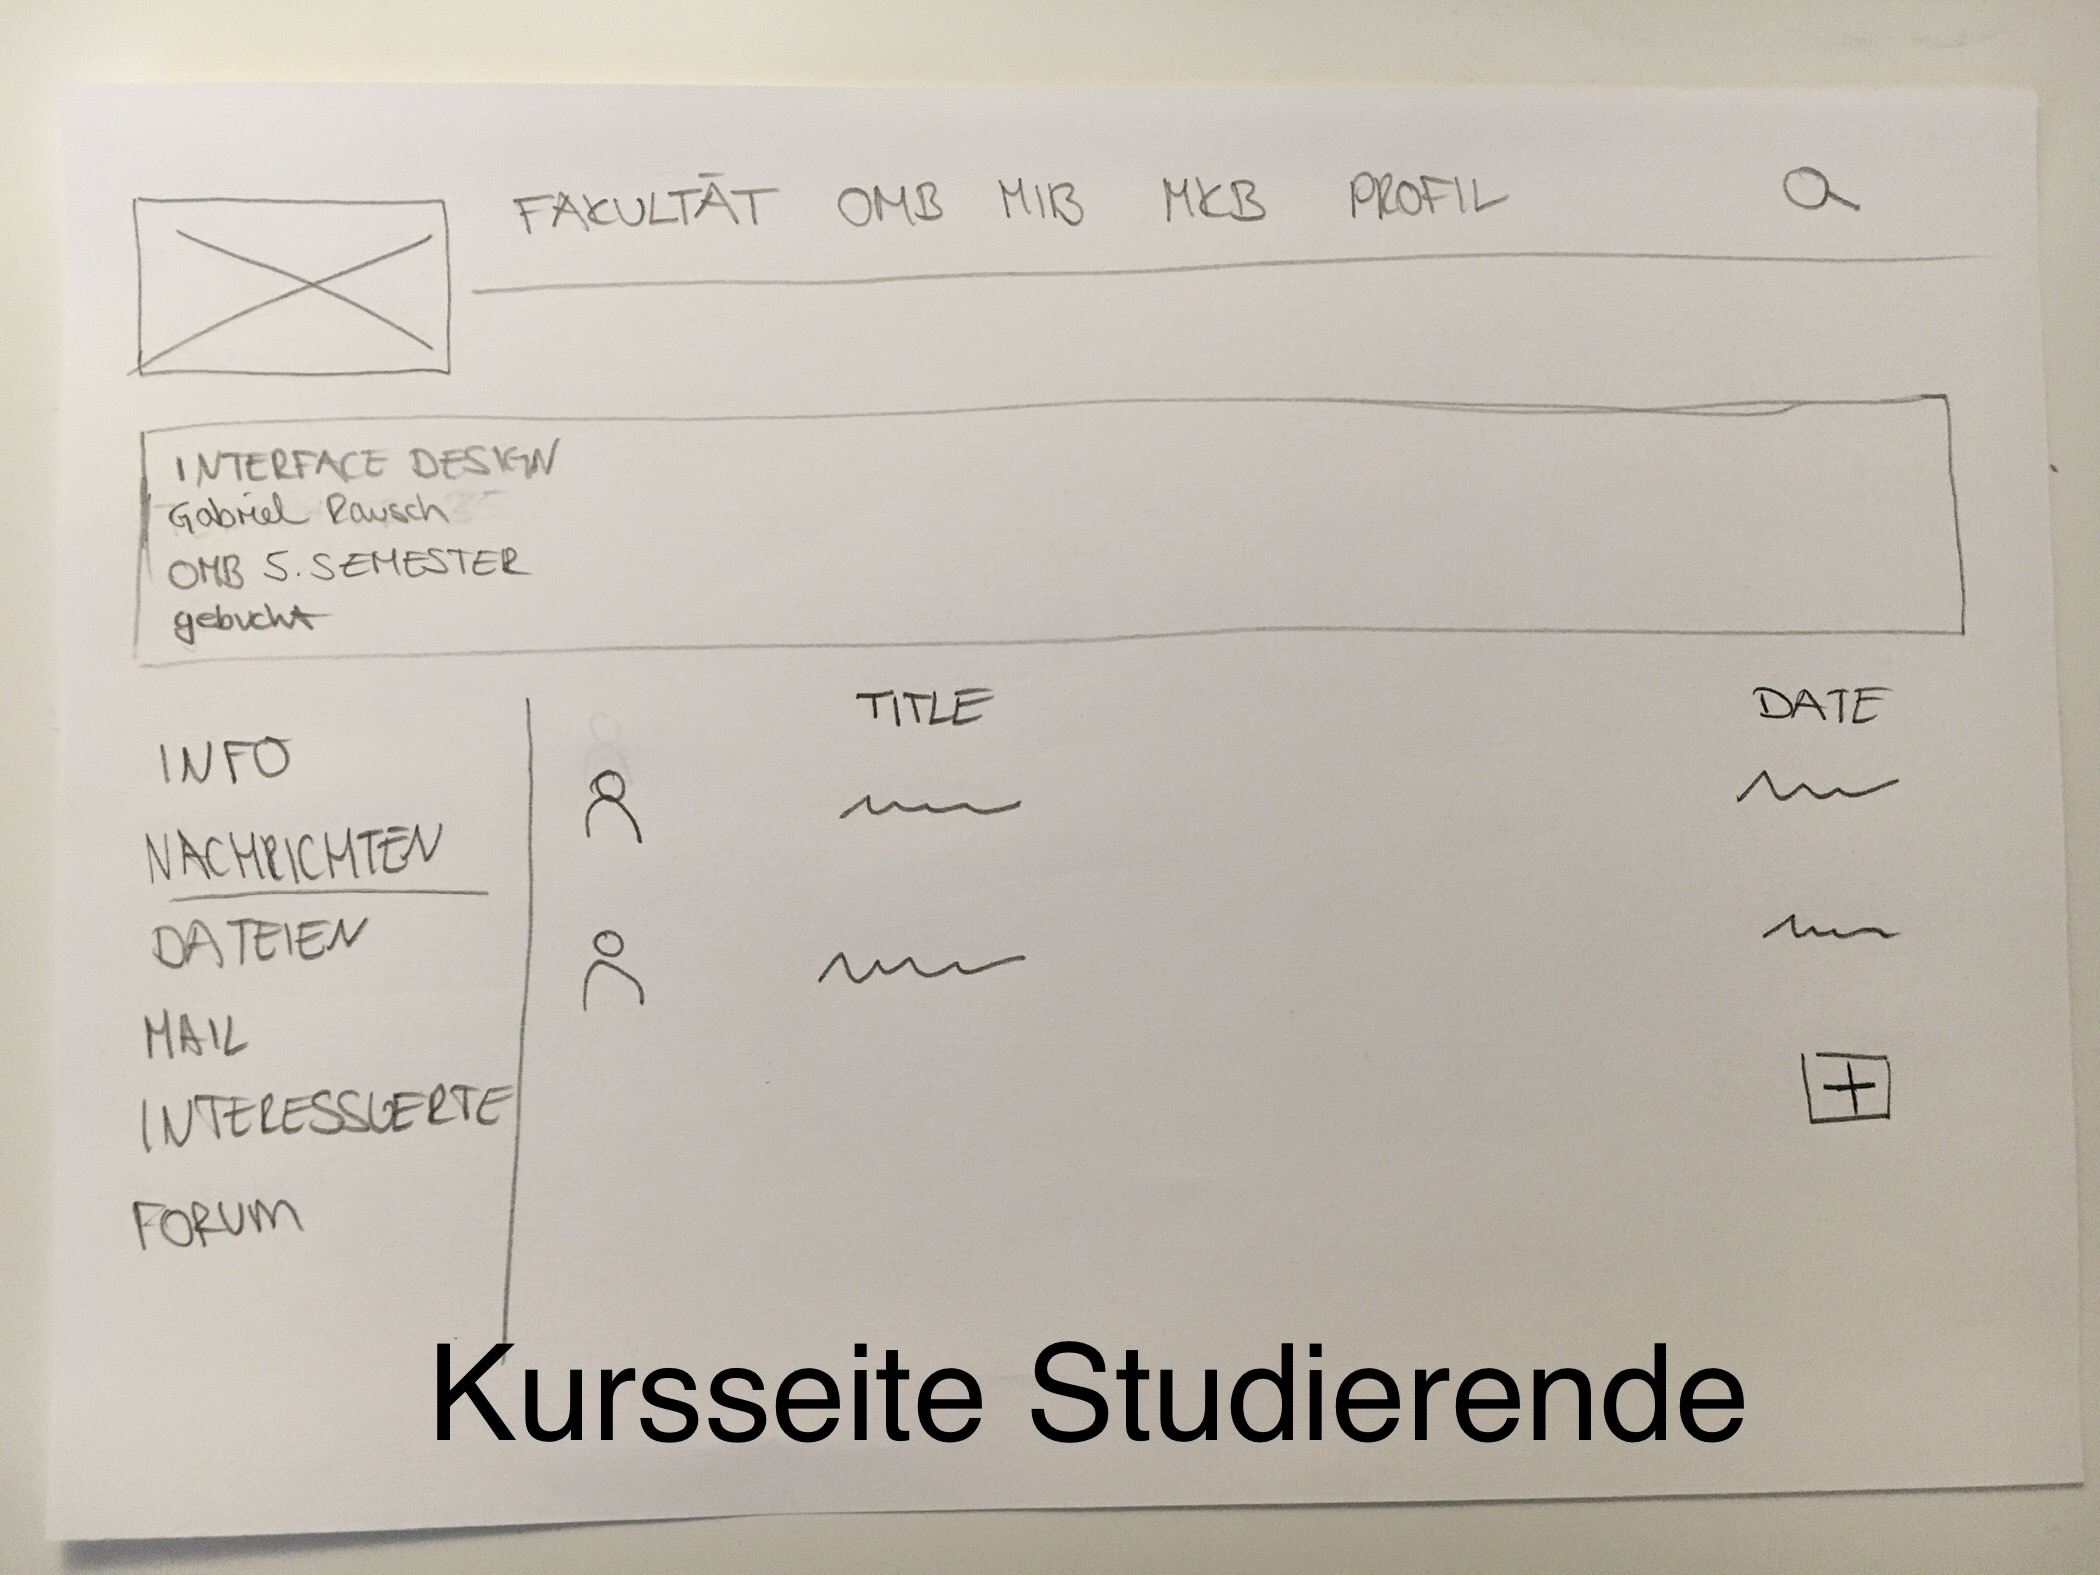 FAKULTÄT OMB MIB MKB PROFIL
INTERFACE DESIGN
Gabriel Rausch
OMB 5. SEMESTER
gebucht
TITLE DATE
INFO
NACHRICHTEN
DATEIEN
MAIL
INTERESSIERTE
FORUM
Kursseite Studierende